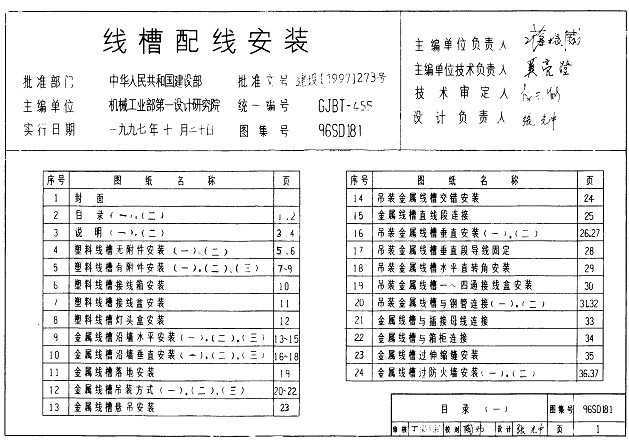 线槽配线安装
批准部门 中华人民共和国建设部 批准文号 建设[1997]273号
主编单位 机械工业部第一设计研究院 统一编号 GJBT-455
实行日期 一九九七年十月二十日 图集号 96SD181
主编单位负责人
主编单位技术负责人
技术审定人
设计负责人
序号 图纸名称 页
1 封面
2 目录(一).(二) 1.2
3 说明(一).(二) 3 4
4 塑料线槽无附件安装(一).(二) 5.6
5 塑料线槽有附件安装(一).(二).(三) 7-9
6 塑料线槽接线箱安装 10
7 塑料线槽接线盒安装 11
8 塑料线槽灯头盒安装 12
9 金属线槽沿墙水平安装(一).(二).(三) 13-15
10 金属线槽沿墙垂直安装(一).(二).(三) 16-18
11 金属线槽落地安装 19
12 金属线槽吊装方式(一).(二).(三) 20-22
13 金属线槽悬吊安装 23
序号 图纸名称 页
14 吊装金属线槽交错安装 24
15 金属线槽直线段连接 25
16 吊装金属线槽垂直安装(一).(二) 26.27
17 吊装金属线槽垂直段导线固定 28
18 吊装金属线槽水平直转角安装 29
19 吊装金属线槽一~四通接线盒安装 30
20 吊装金属线槽与钢管连接(一).(二) 31.32
21 金属线槽与插接母线连接 33
22 金属线槽与箱柜连接 34
23 金属线槽过伸缩缝安装 35
24 金属线槽过防火墙安装(一).(二) 36.37
目录(一) 图集号 96SD181
审核 校对 设计 页 1